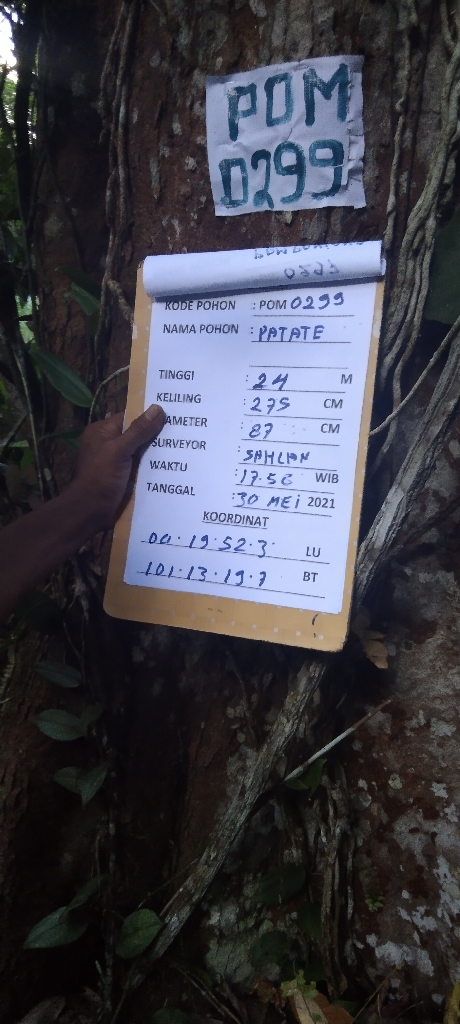 POM
0299
KODE POHON : POM 0299
NAMA POHON : PATATE
TINGGI : 24 M
KELILING : 275 CM
AMETER : 87 CM
SURVEYOR : SAHLAN
WAKTU : 17.56 WIB
TANGGAL : 30 MEI 2021
KOORDINAT
00.19.52.3 LU
101.13.19.7 BT